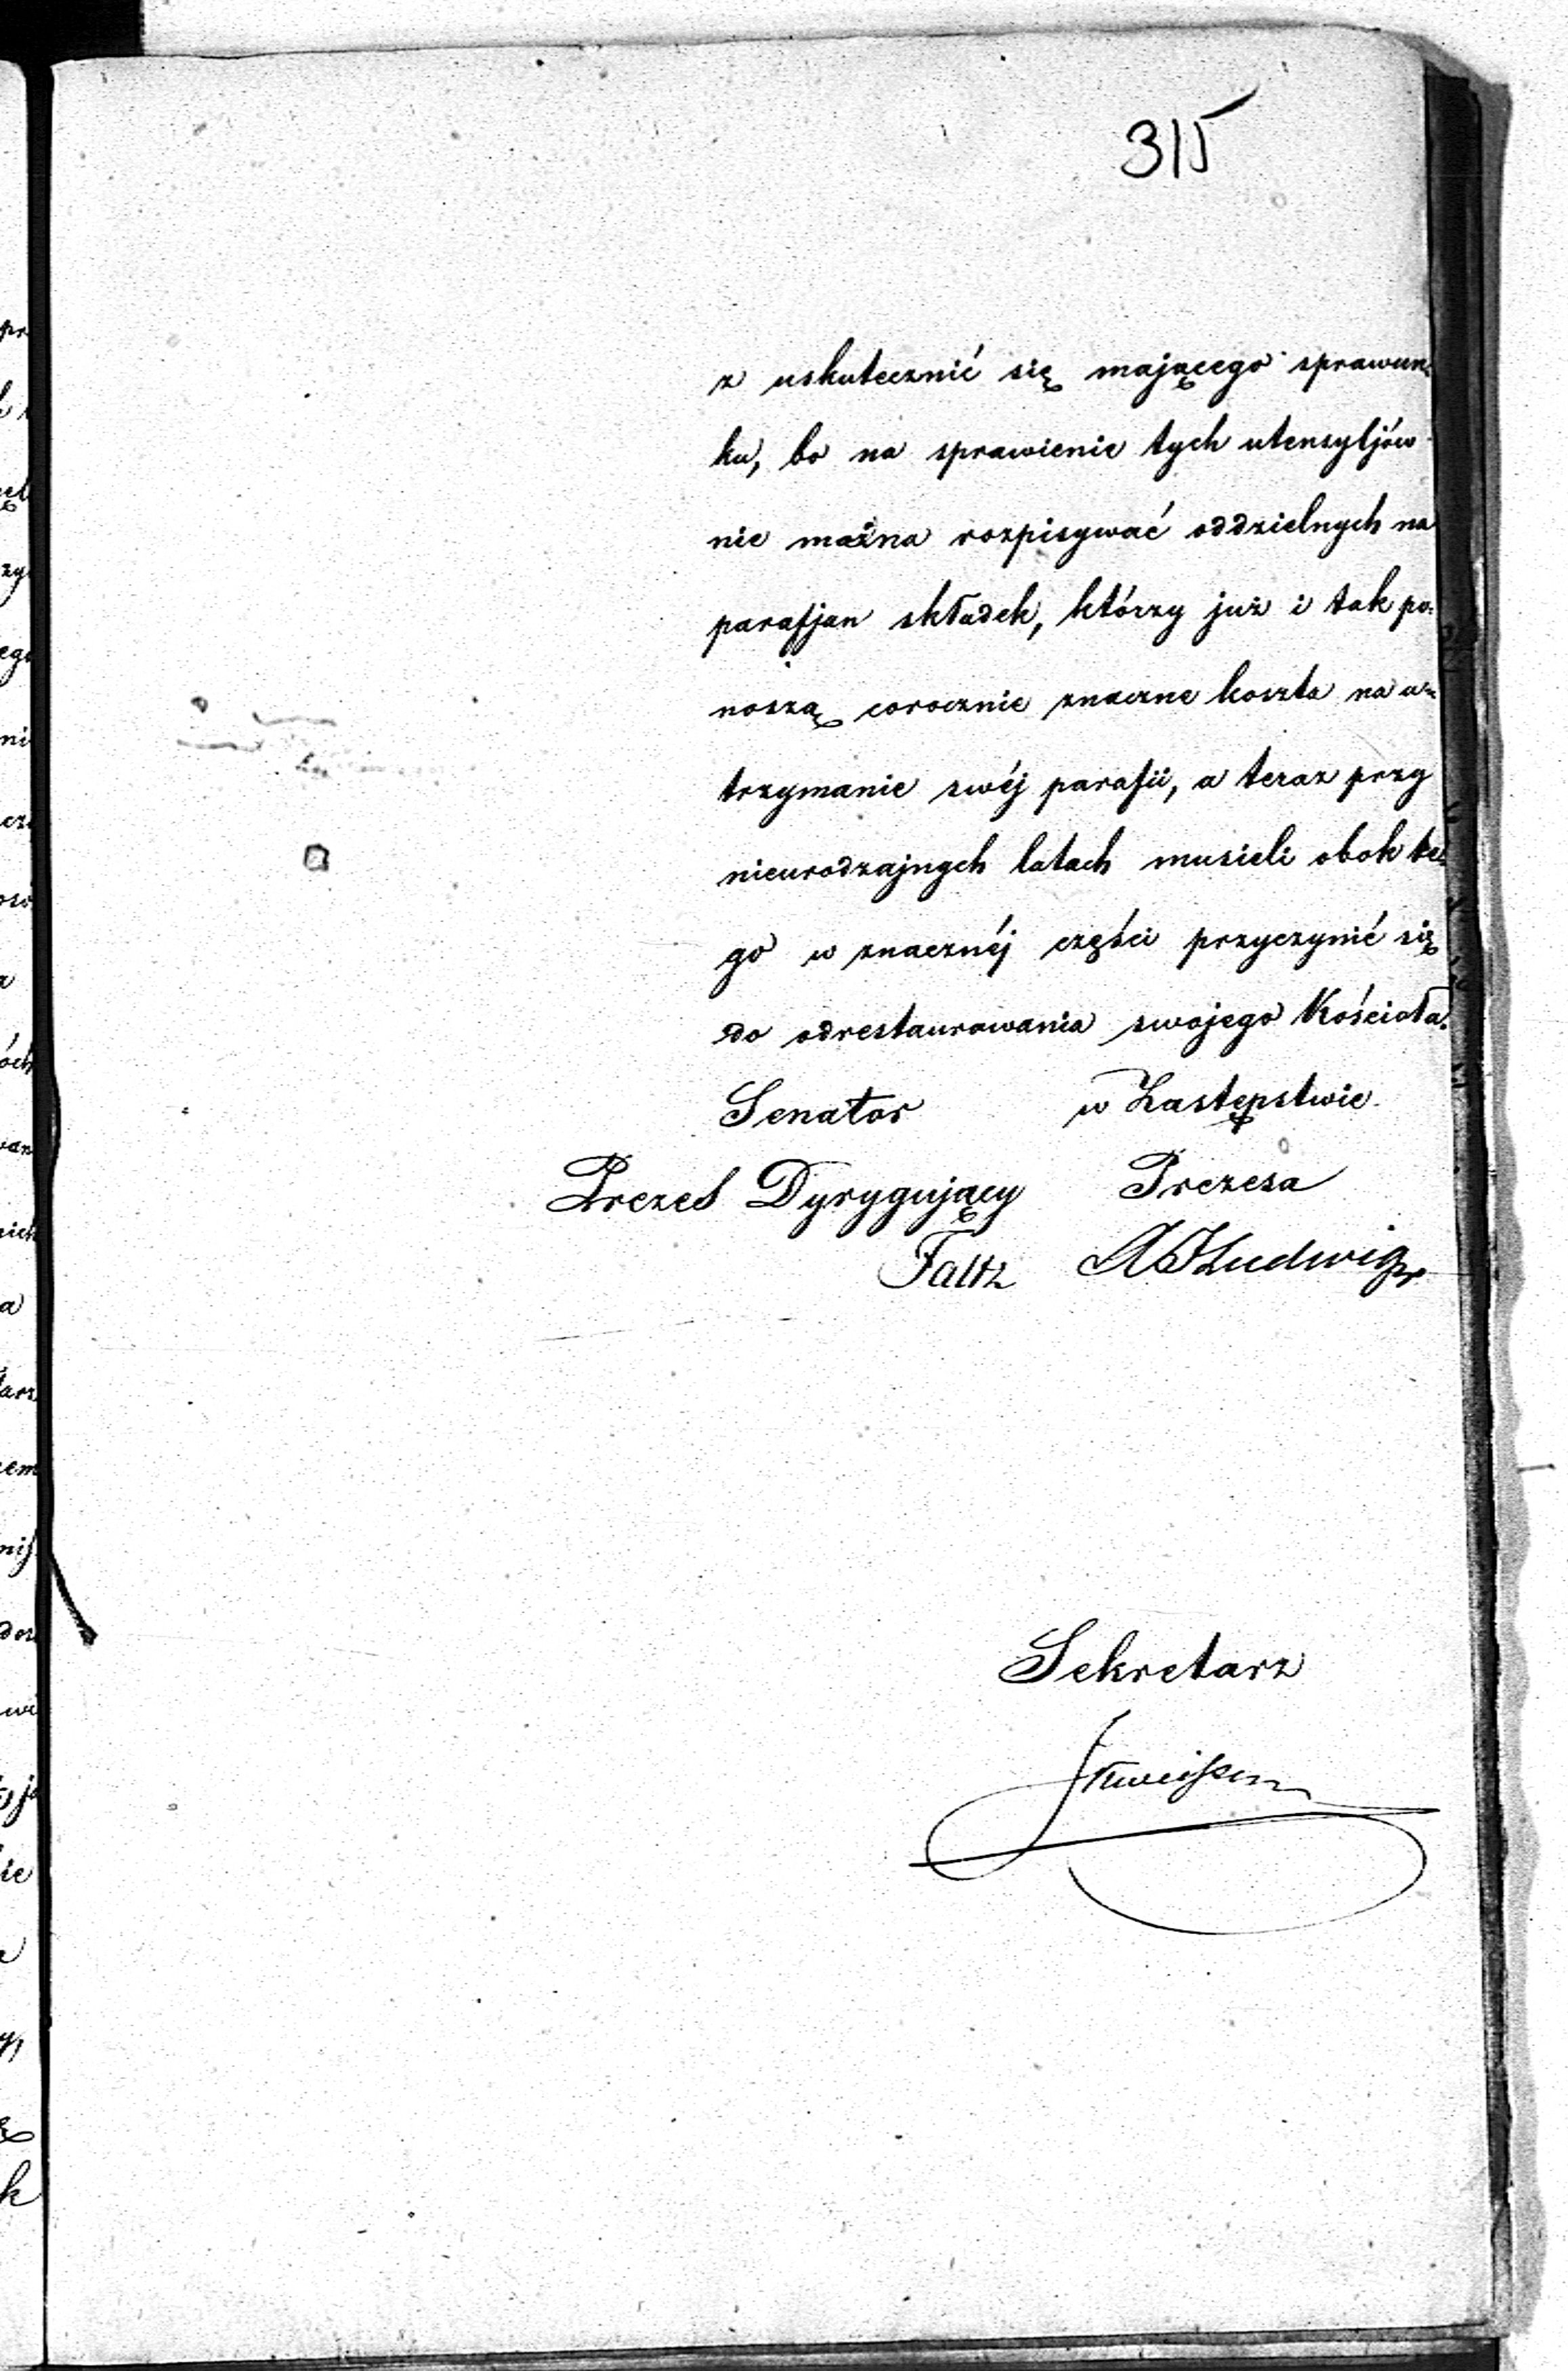 315
z uskutecznić się mającego sprawun-
ku, bo na sprawienie tych utensyljów
nie można rozpisywać oddzielnych na
parafjan składek, którzy już i tak po-
noszą corocznie znaczne koszta na u-
trzymanie swéj parafii, a teraz przy
nieurodzajnych latach musieli obok te-
go w znacznéj części przyczynić się
do odrestaurowania swojego Kościoła.
Senator w Zastępstwie
Prezes Dyrygujący Prezesa
Faltz A Ludwig
Sekretarz